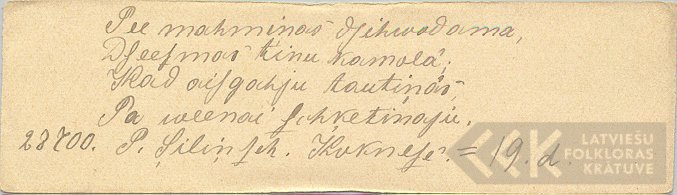 Pee mahminas dsihwodama,
Dseesmas tinu kamolâ;
Kad aisgahju tautinâs,
Pa weenai schketinaju.
23700. P. Siliņsch. Koknesê. = 19. d.
LATVIEŠU
FOLKLORAS
KRĀTUVE